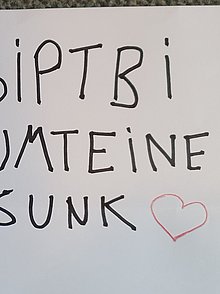 IPTBI
UMTEINE
SUNK